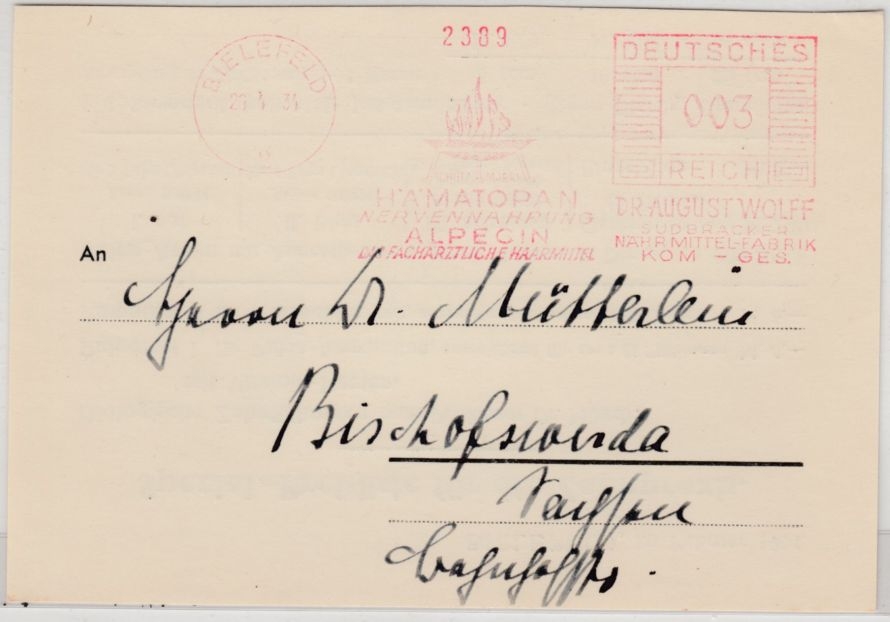 2389
BIELEFELD
DEUTSCHES
003
REICH
HÄMATOPAN
NERVENNAHRUNG
ALPECIN
DIE FACHÄRZTLICHE HAARMITTEL
DR. AUGUST WOLFF
SUDBRACKER
NÄHRMITTEL-FABRIK
KOM - GES.
An
Herrn Dr. Mütterlein
Bischofswerda
Sachsen
Bahnhofstr.